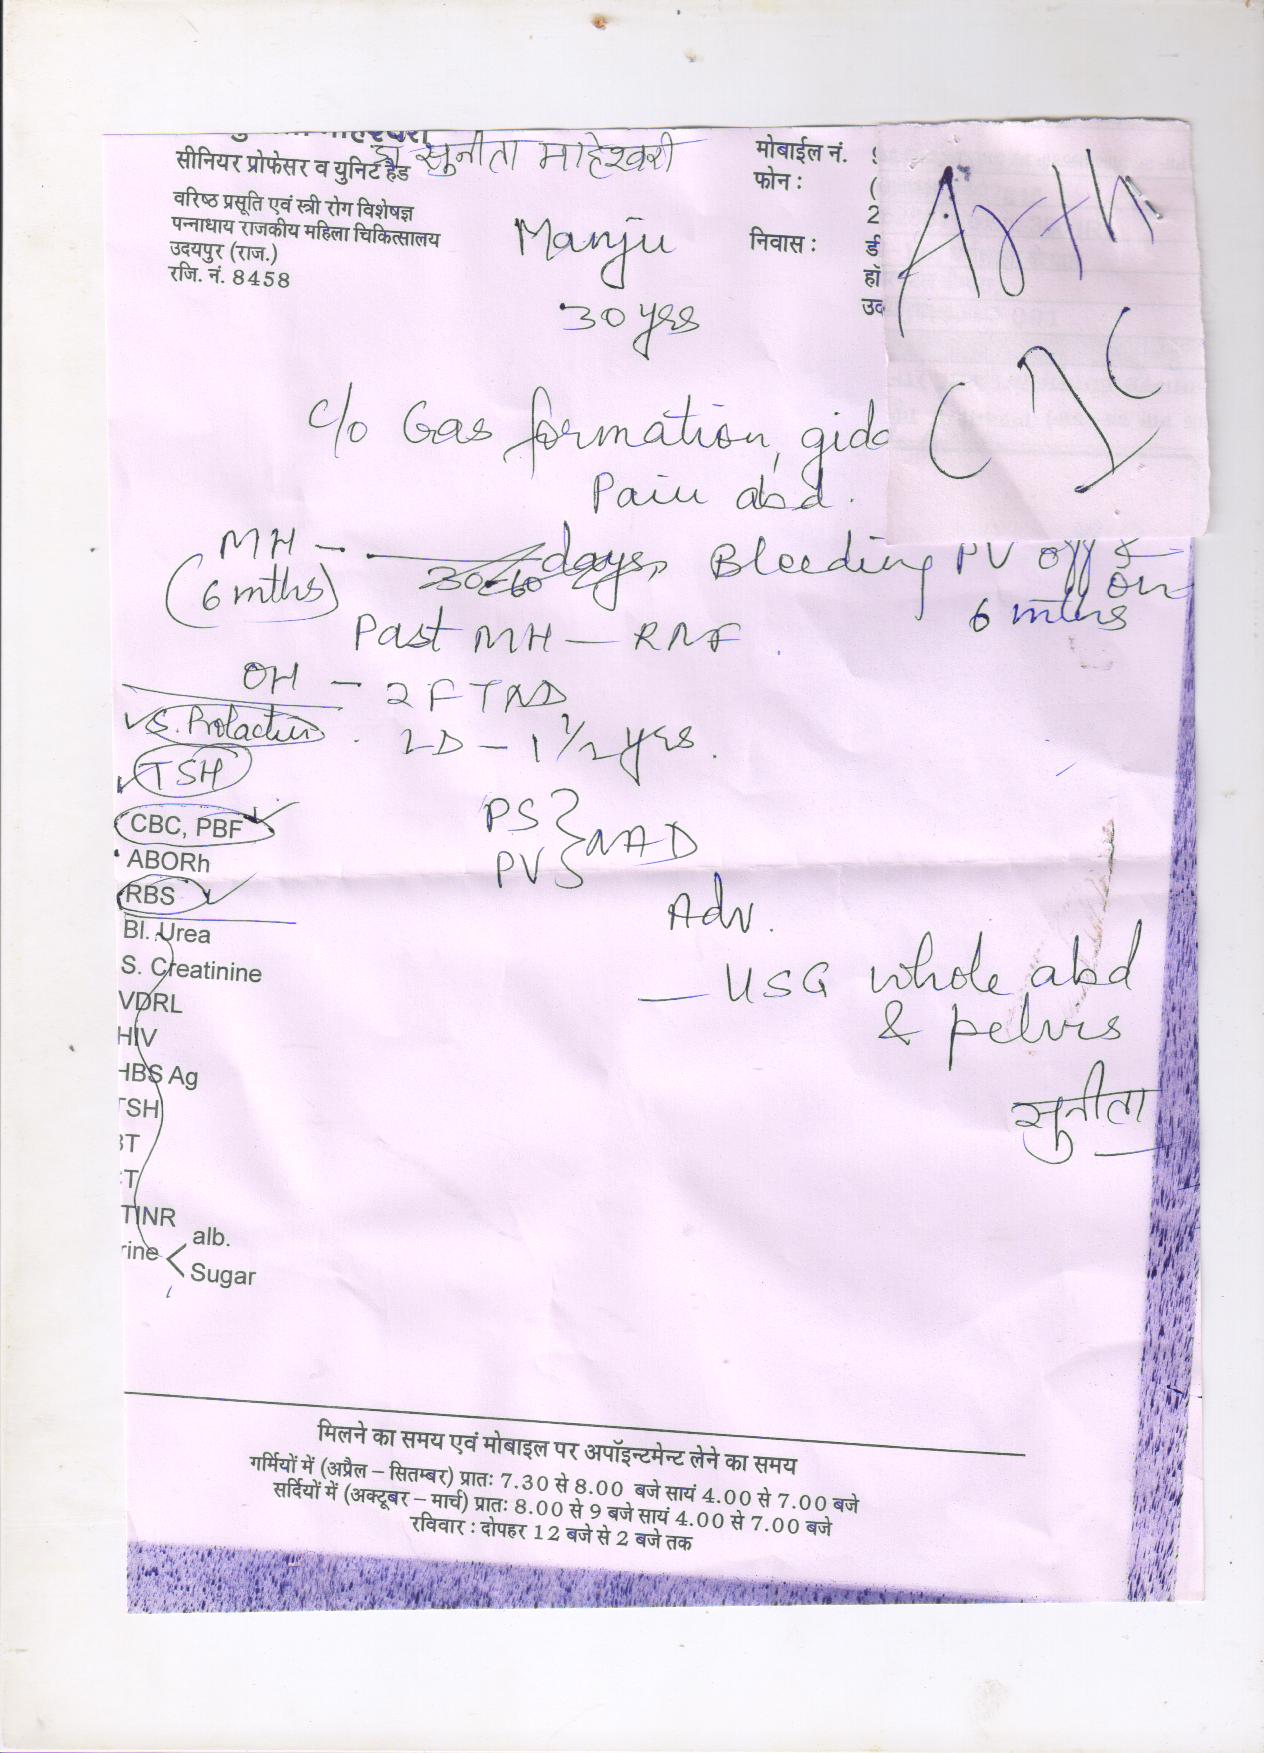 डॉ सुनीता माहेश्वरी
सीनियर प्रोफेसर व युनिट हैड
वरिष्ठ प्रसूति एवं स्त्री रोग विशेषज्ञ
पन्नाधाय राजकीय महिला चिकित्सालय
उदयपुर (राज.)
रजि. नं. 8458
मोबाईल नं.
फोन :
निवास :
Arth
Manju
30 yrs
c/o Gas formation,
Pain abd.
MH — 30-60 days, Bleeding PV off & on
(6 mths) 6 mths
Past MH — RNF
OH — 2 FTND
LD — 1 1/2 yrs.
S. Prolactin
TSH
CBC, PBF
ABORh
RBS
Bl. Urea
S. Creatinine
VDRL
HIV
HBS Ag
TSH
PS } NAD
PV
Adv.
— USG whole abd
& pelvis
सुनीता
alb.
Sugar
मिलने का समय एवं मोबाइल पर अपॉइन्टमेन्ट लेने का समय
गर्मियों में (अप्रैल – सितम्बर) प्रातः 7.30 से 8.00 बजे सायं 4.00 से 7.00 बजे
सर्दियों में (अक्टूबर – मार्च) प्रातः 8.00 से 9 बजे सायं 4.00 से 7.00 बजे
रविवार : दोपहर 12 बजे से 2 बजे तक